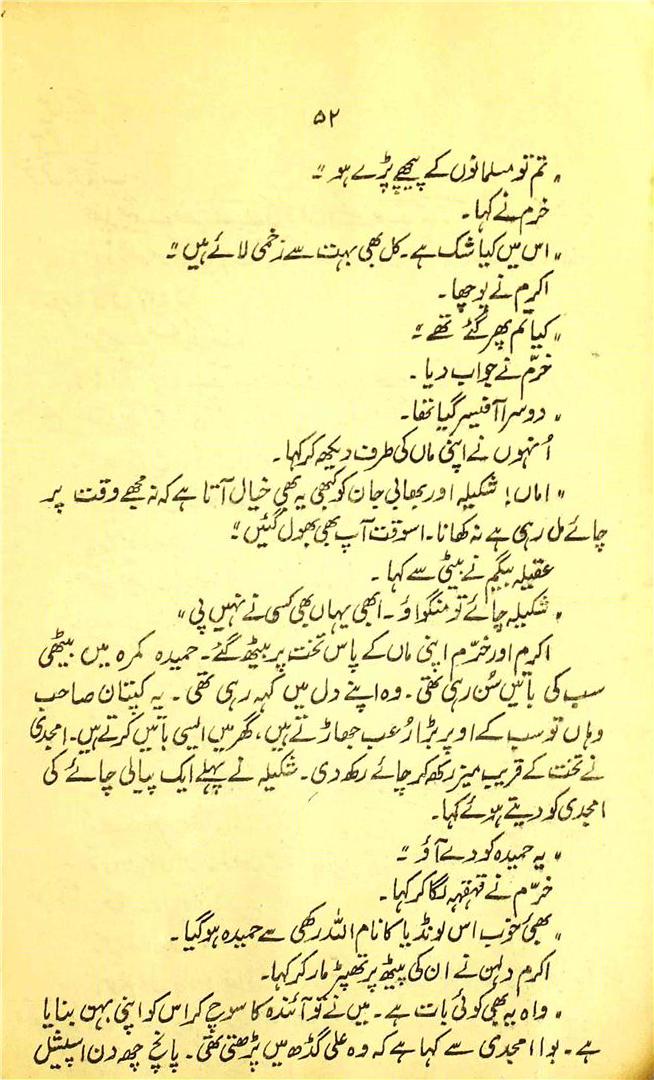 ۵۲
"تم تو مسلمانوں کے پیچھے پڑے ہو"۔
خرم نے کہا۔
"اس میں کیا شک ہے۔ کل بھی بہت سے زخمی لائے ہیں"۔
اکرم نے پوچھا۔
"کیا تم پھر گئے تھے"۔
خرّم نے جواب دیا۔
"دوسرا آفیسر گیا تھا۔
اُنہوں نے اپنی ماں کی طرف دیکھ کر کہا۔
"اماں! شکیلہ اور بھابی جان کو کبھی یہ بھی خیال آتا ہے کہ نہ مجھے وقت پر
چائے مل رہی ہے نہ کھانا۔ اسوقت آپ بھی بھول گئیں"۔
عقیلہ بیگم نے بیٹی سے کہا۔
"شکیلہ چائے تو منگواؤ۔ ابھی یہاں بھی کسی نے نہیں پی"
اکرم اور خرّم اپنی ماں کے پاس تخت پر بیٹھ گئے۔ حمیدہ کمرہ میں بیٹھی
سب کی باتیں سُن رہی تھی۔ وہ اپنے دل میں کہہ رہی تھی۔ یہ کپتان صاحب
وہاں تو سب کے اوپر بڑا رُعب جھاڑتے ہیں، گھر میں ایسی باتیں کرتے ہیں۔ امجدی
نے تخت کے قریب میز رکھ کر چائے رکھ دی۔ شکیلہ نے پہلے ایک پیالی چائے کی
امجدی کو دیتے ہوئے کہا۔
"یہ حمیدہ کو دے آؤ"۔
خرّم نے قہقہہ لگا کر کہا۔
"بھئ خوب اس لونڈیا کا نام اللہ رکھی سے حمیدہ ہوگیا۔
اکرم دلہن نے ان کی پیٹھ پر تھپڑ مار کر کہا۔
"واہ یہ بھی کوئی بات ہے۔ میں نے تو آئندہ کا سوچ کر اس کو اپنی بہن بنایا
ہے۔ بوا امجدی سے کہا ہے کہ وہ علی گڈھ میں پڑھتی تھی۔ پانچ چھ دن اسپیشل